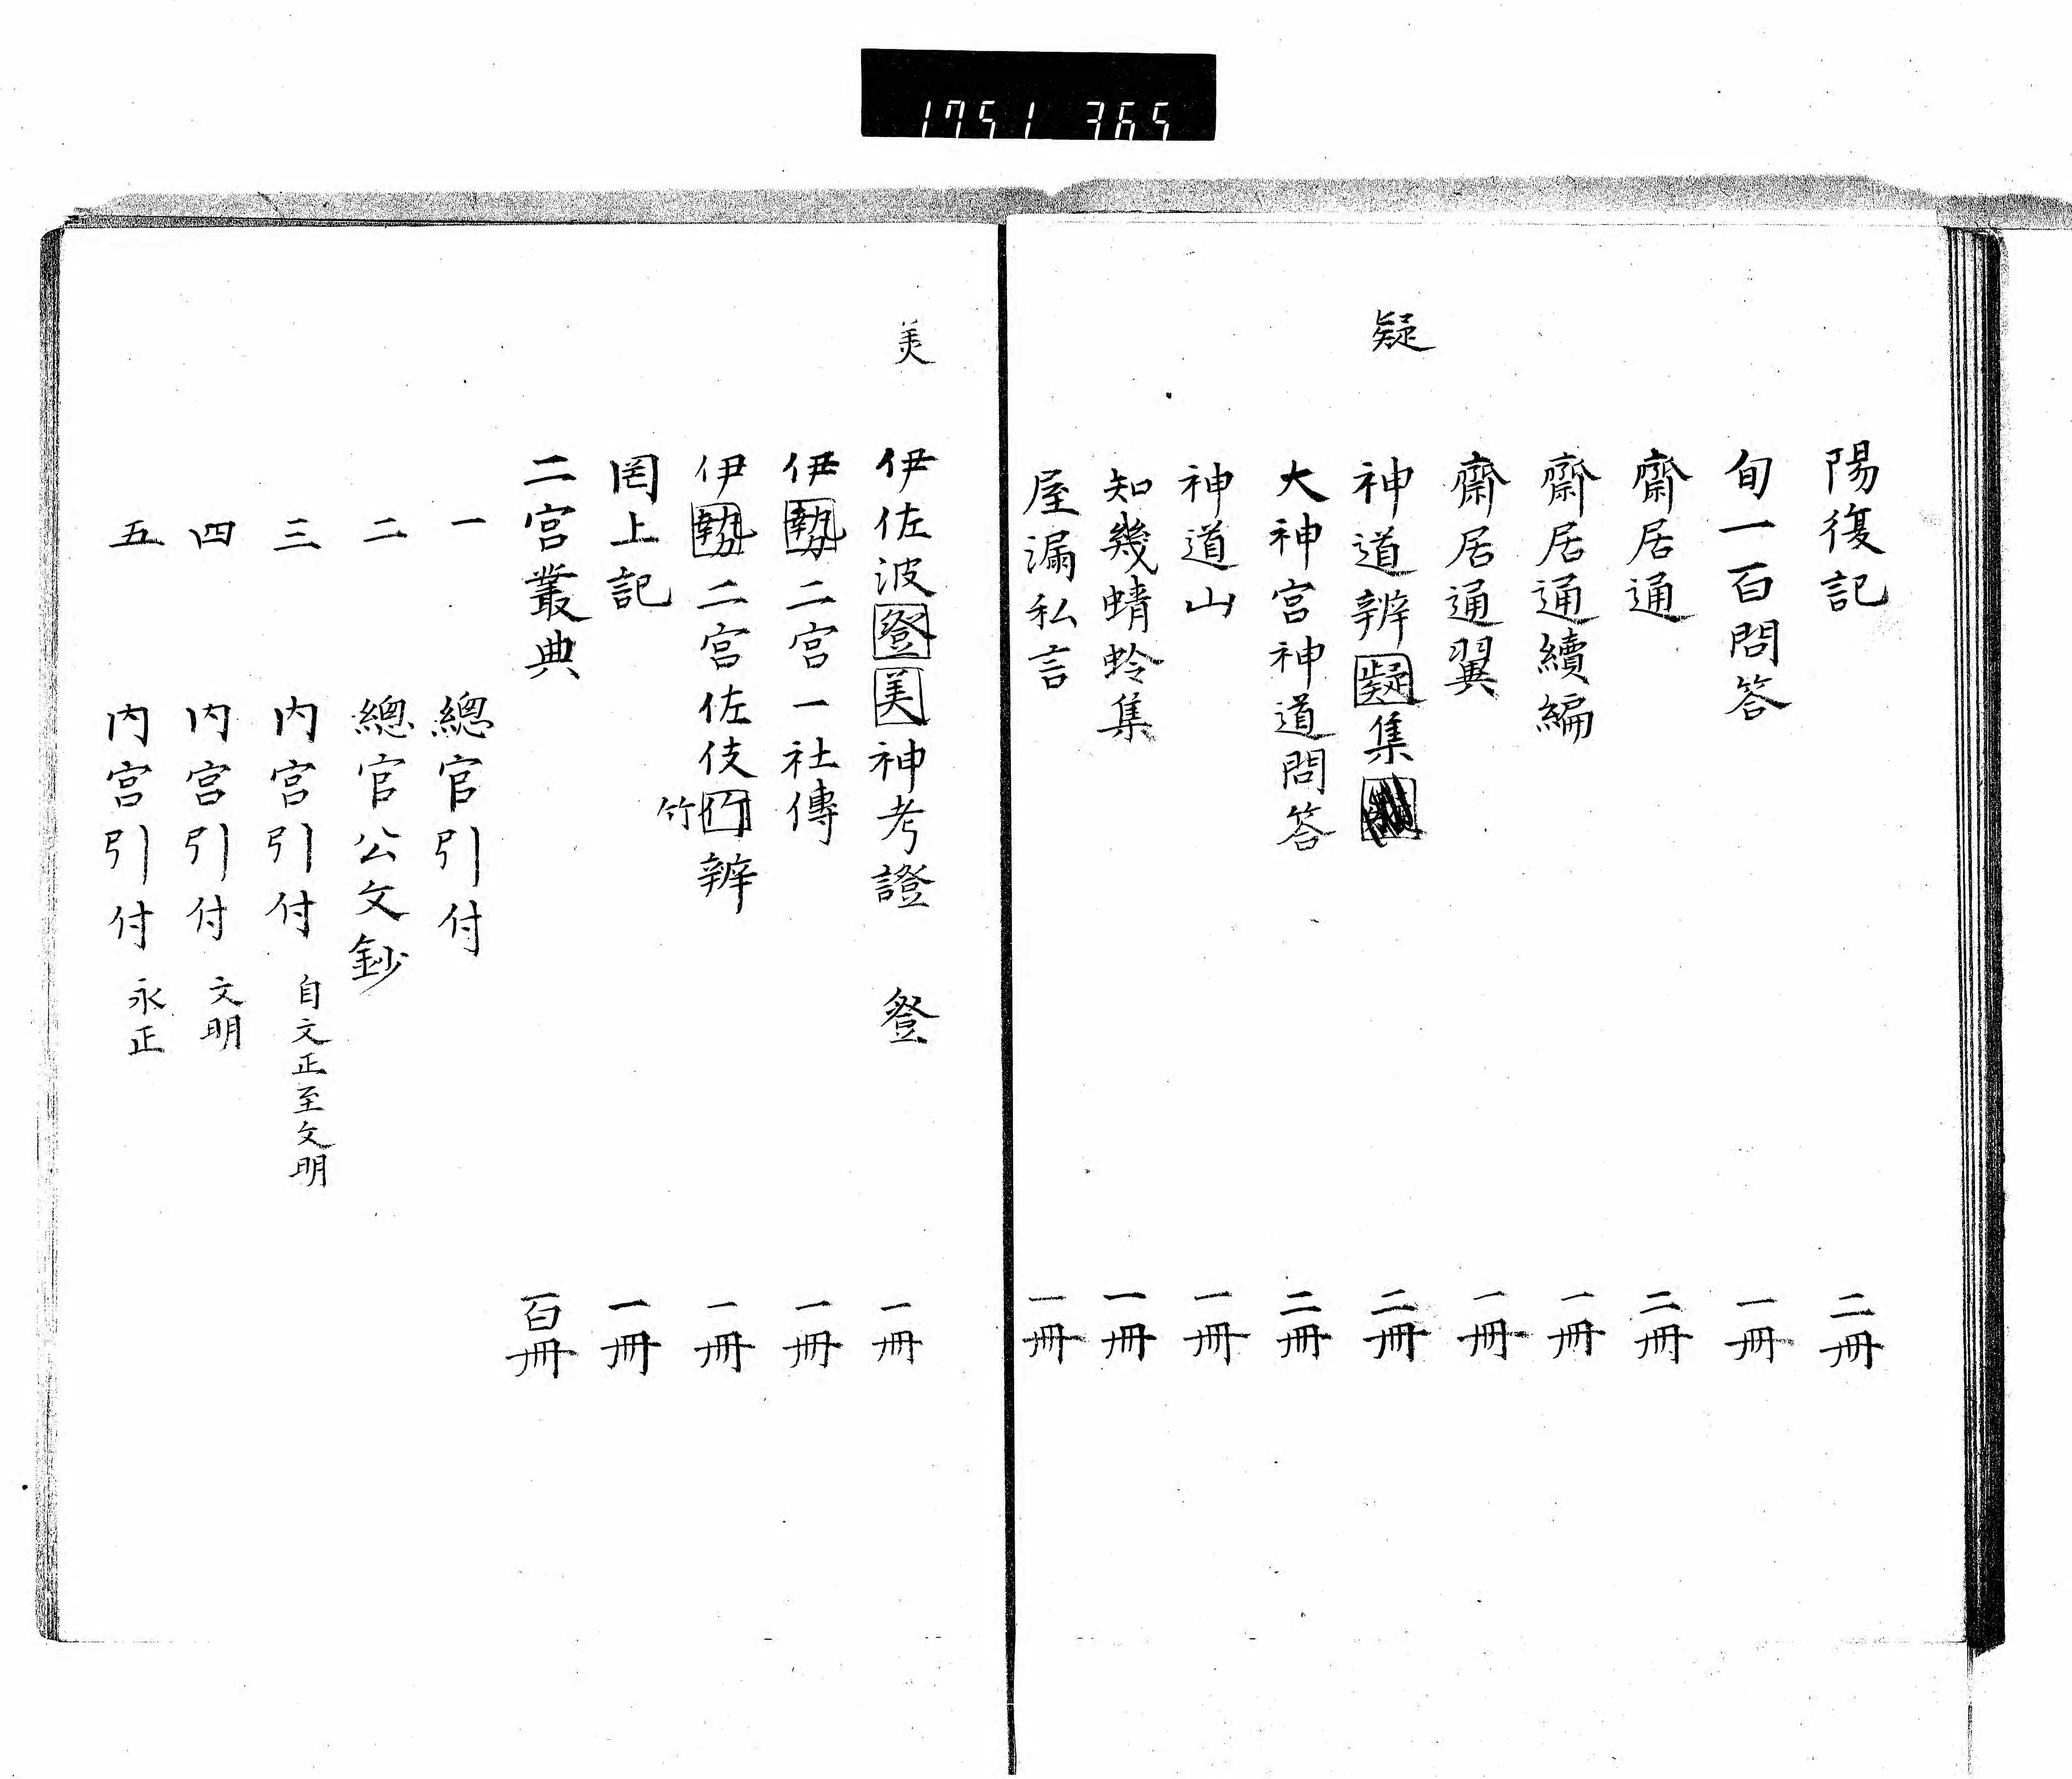 1751 365
陽復記 二冊
旬一百問答 一冊
齋居通 二冊
齋居通續編 一冊
齋居通翼 一冊
疑
神道辨疑集 二冊
大神宮神道問答 二冊
神道山 一冊
知幾蜻蛉集 一冊
屋漏私言 一冊
美
伊佐波登美神考證 登 一冊
伊勢二宮一社傳 一冊
伊勢二宮佐伎竹辨 一冊
竹
罔上記 一冊
二宮叢典 百冊
一 總官引付
二 總官公文鈔
三 內宮引付 自文正至文明
四 內宮引付 文明
五 內宮引付 永正